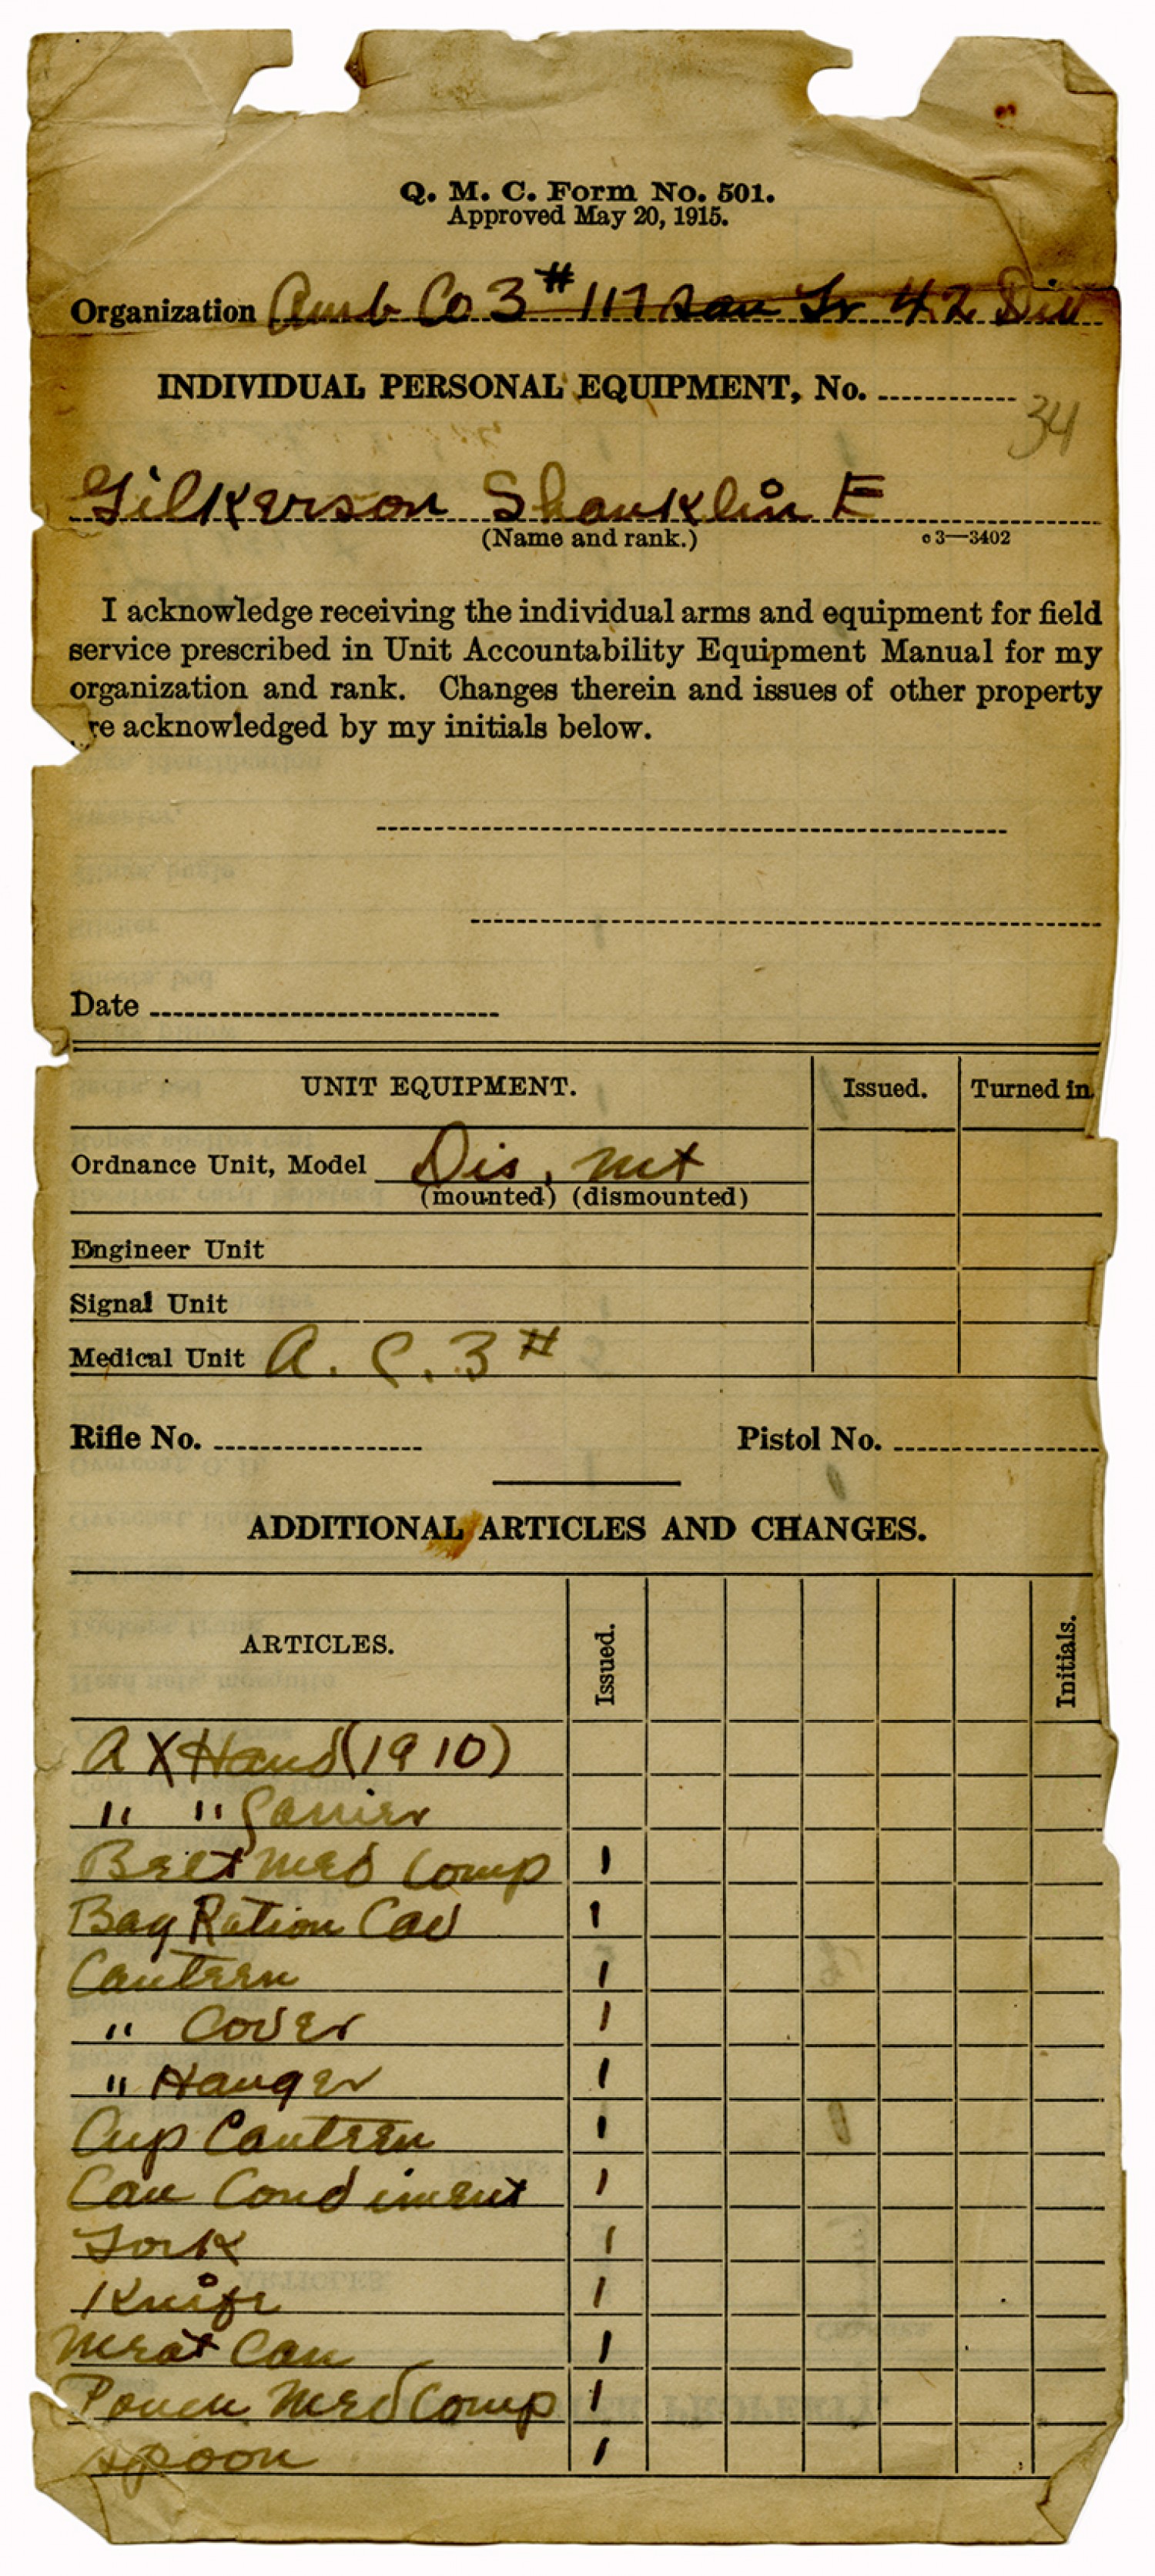 Q. M. C. Form No. 501.
Approved May 20, 1915.
Organization Amb Co 3 # 117 San Tr 42 Div
INDIVIDUAL PERSONAL EQUIPMENT, No.
34
Gilkerson Shanklin E
(Name and rank.) c 3—3402
I acknowledge receiving the individual arms and equipment for field
service prescribed in Unit Accountability Equipment Manual for my
organization and rank. Changes therein and issues of other property
re acknowledged by my initials below.
Date
UNIT EQUIPMENT. Issued. Turned in
Ordnance Unit, Model Dis, mt
(mounted) (dismounted)
Engineer Unit
Signal Unit
Medical Unit A. C. 3 #
Rifle No. Pistol No.
ADDITIONAL ARTICLES AND CHANGES.
ARTICLES. Issued. Initials.
AX Hand (1910)
" " Carrier
Belt Med Comp 1
Bag Ration Cav 1
Canteen 1
" Cover 1
" Hanger 1
Cup Canteen 1
Can Condiment 1
Fork 1
Knife 1
Meat Can 1
Pouch Med Comp 1
Spoon 1